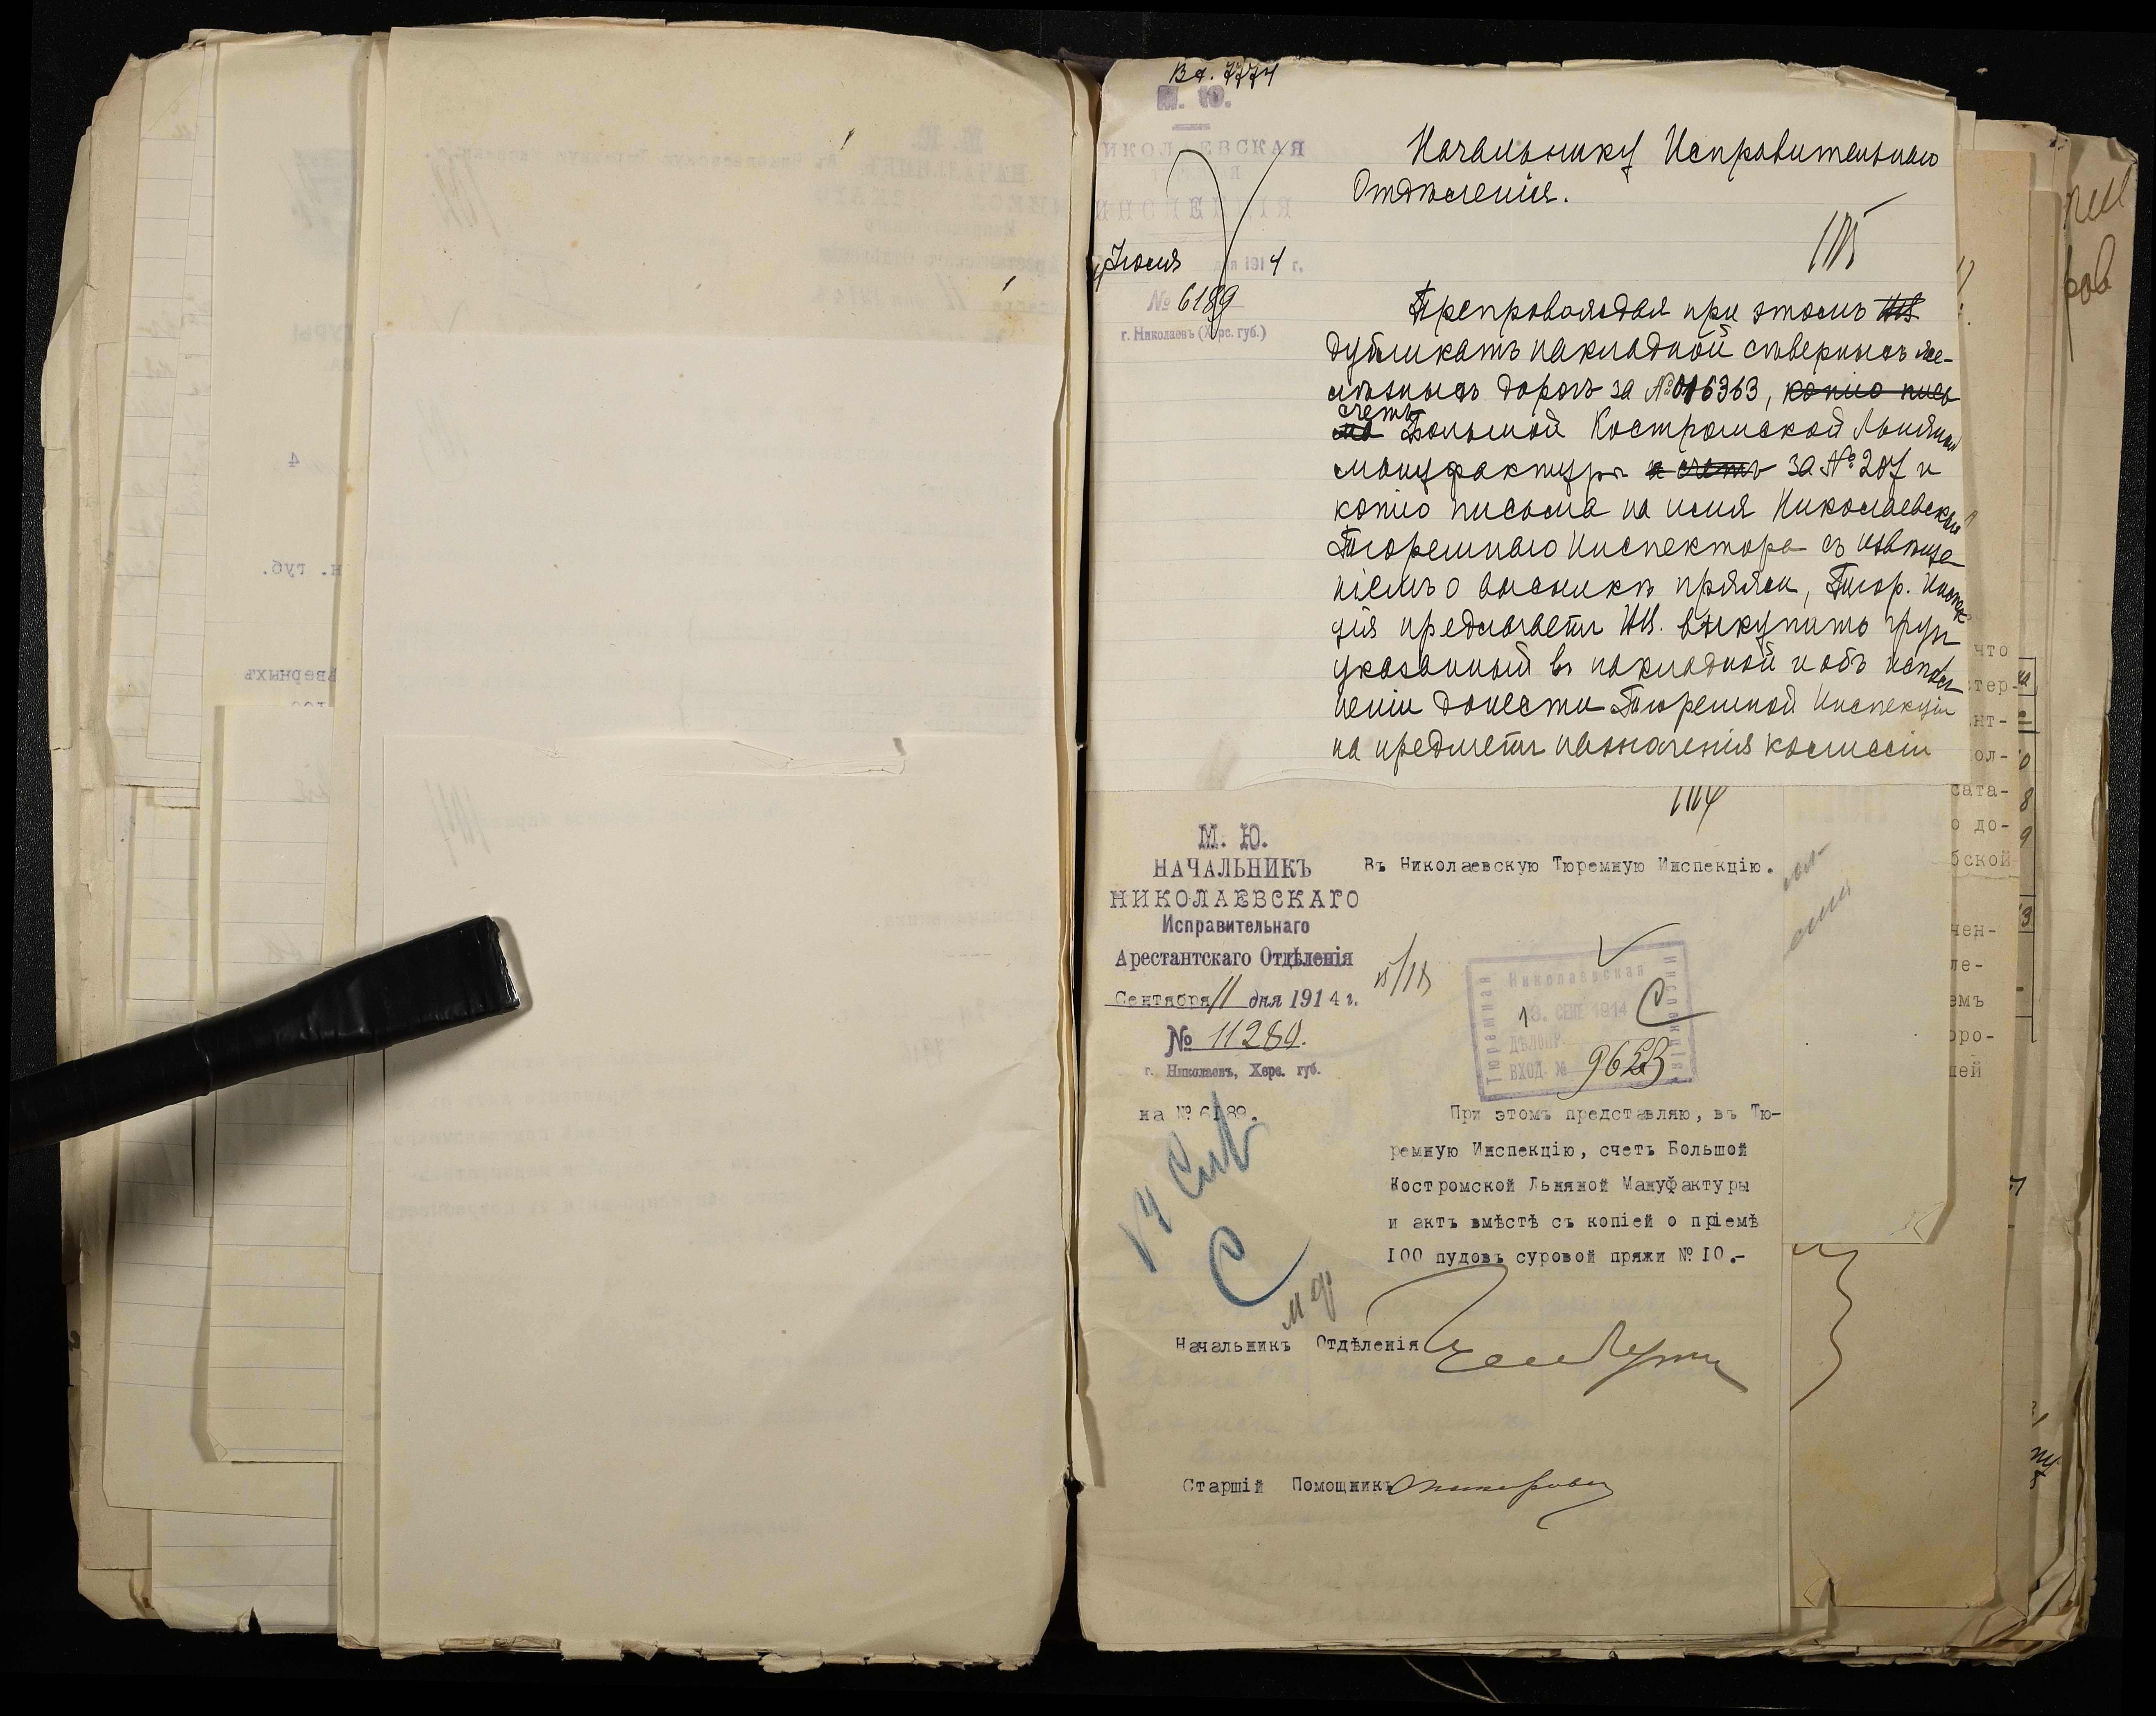 Вх. 7774
М. Ю.
НИКОЛАЕВСКАЯ
ТЮРЕМНАЯ
ИНСПЕКЦІЯ
Іюля дня 1914 г.
№ 6189
г. Николаевъ (Херс. губ.)
Начальнику Исправительнаго
Отдѣленія.
Препровождая при этомъ
дубликатъ накладной сѣверныхъ же-
лѣзныхъ дорогъ за № 016363, копію пись
ма счетъ Большой Костромской Льняной
мануфактуры и счетъ за № 287 и
копію письма на имя Николаевскаго
Тюремнаго Инспектора съ извѣще-
ніемъ о высылкѣ пряжи, Тюр. Инспек
ція предлагаетъ ИН. выкупить грузъ
указанный въ накладной и объ исполн
неніи донести Тюремной Инспекціи
на предметъ назначенія комиссіи
М. Ю.
НАЧАЛЬНИКЪ
НИКОЛАЕВСКАГО
Исправительнаго
Арестантскаго Отдѣленія
Сентября 11 дня 1914 г.
№ 11280.
г. Николаевъ, Херс. губ.
на № 6189.
Въ Николаевскую Тюремную Инспекцію.
Николаевская
Тюремная
Инспекція
13. СЕНТ 1914
ДѢЛОПР.
ВХОД. №
При этомъ представляю, въ Тю-
ремную Инспекцію, счетъ Большой
Костромской Льняной Мануфактуры
и актъ вмѣстѣ съ копіей о пріемѣ
100 пудовъ суровой пряжи № 10.-
Начальникъ Отдѣленія
Старшій Помощникъ
что
стер-
нт-
ол-
сата-
о до-
бской
чен-
ле-
емъ
оро-
шей